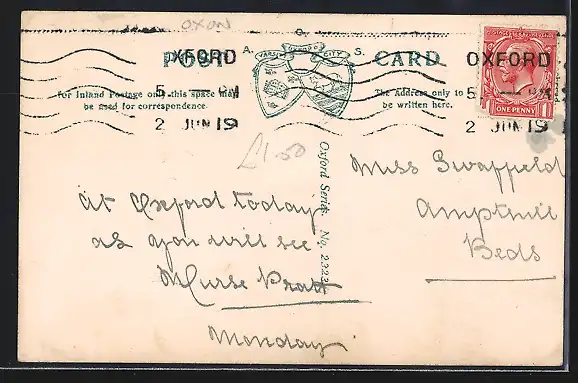 OXON
POST CARD
A. O. S.
VARSITY OXFORD CITY
OXFORD
5 — PM
2 JUN 19
OXFORD
5 — PM
2 JUN 19
ONE PENNY
1 1
For Inland Postage only this space may
be used for correspondence.
The Address only to
be written here.
£1.50
Oxford Series. No. 2323
At Oxford today
as you will see
Nurse Pratt
Monday.
Miss Swaffield
Ampthill
Beds